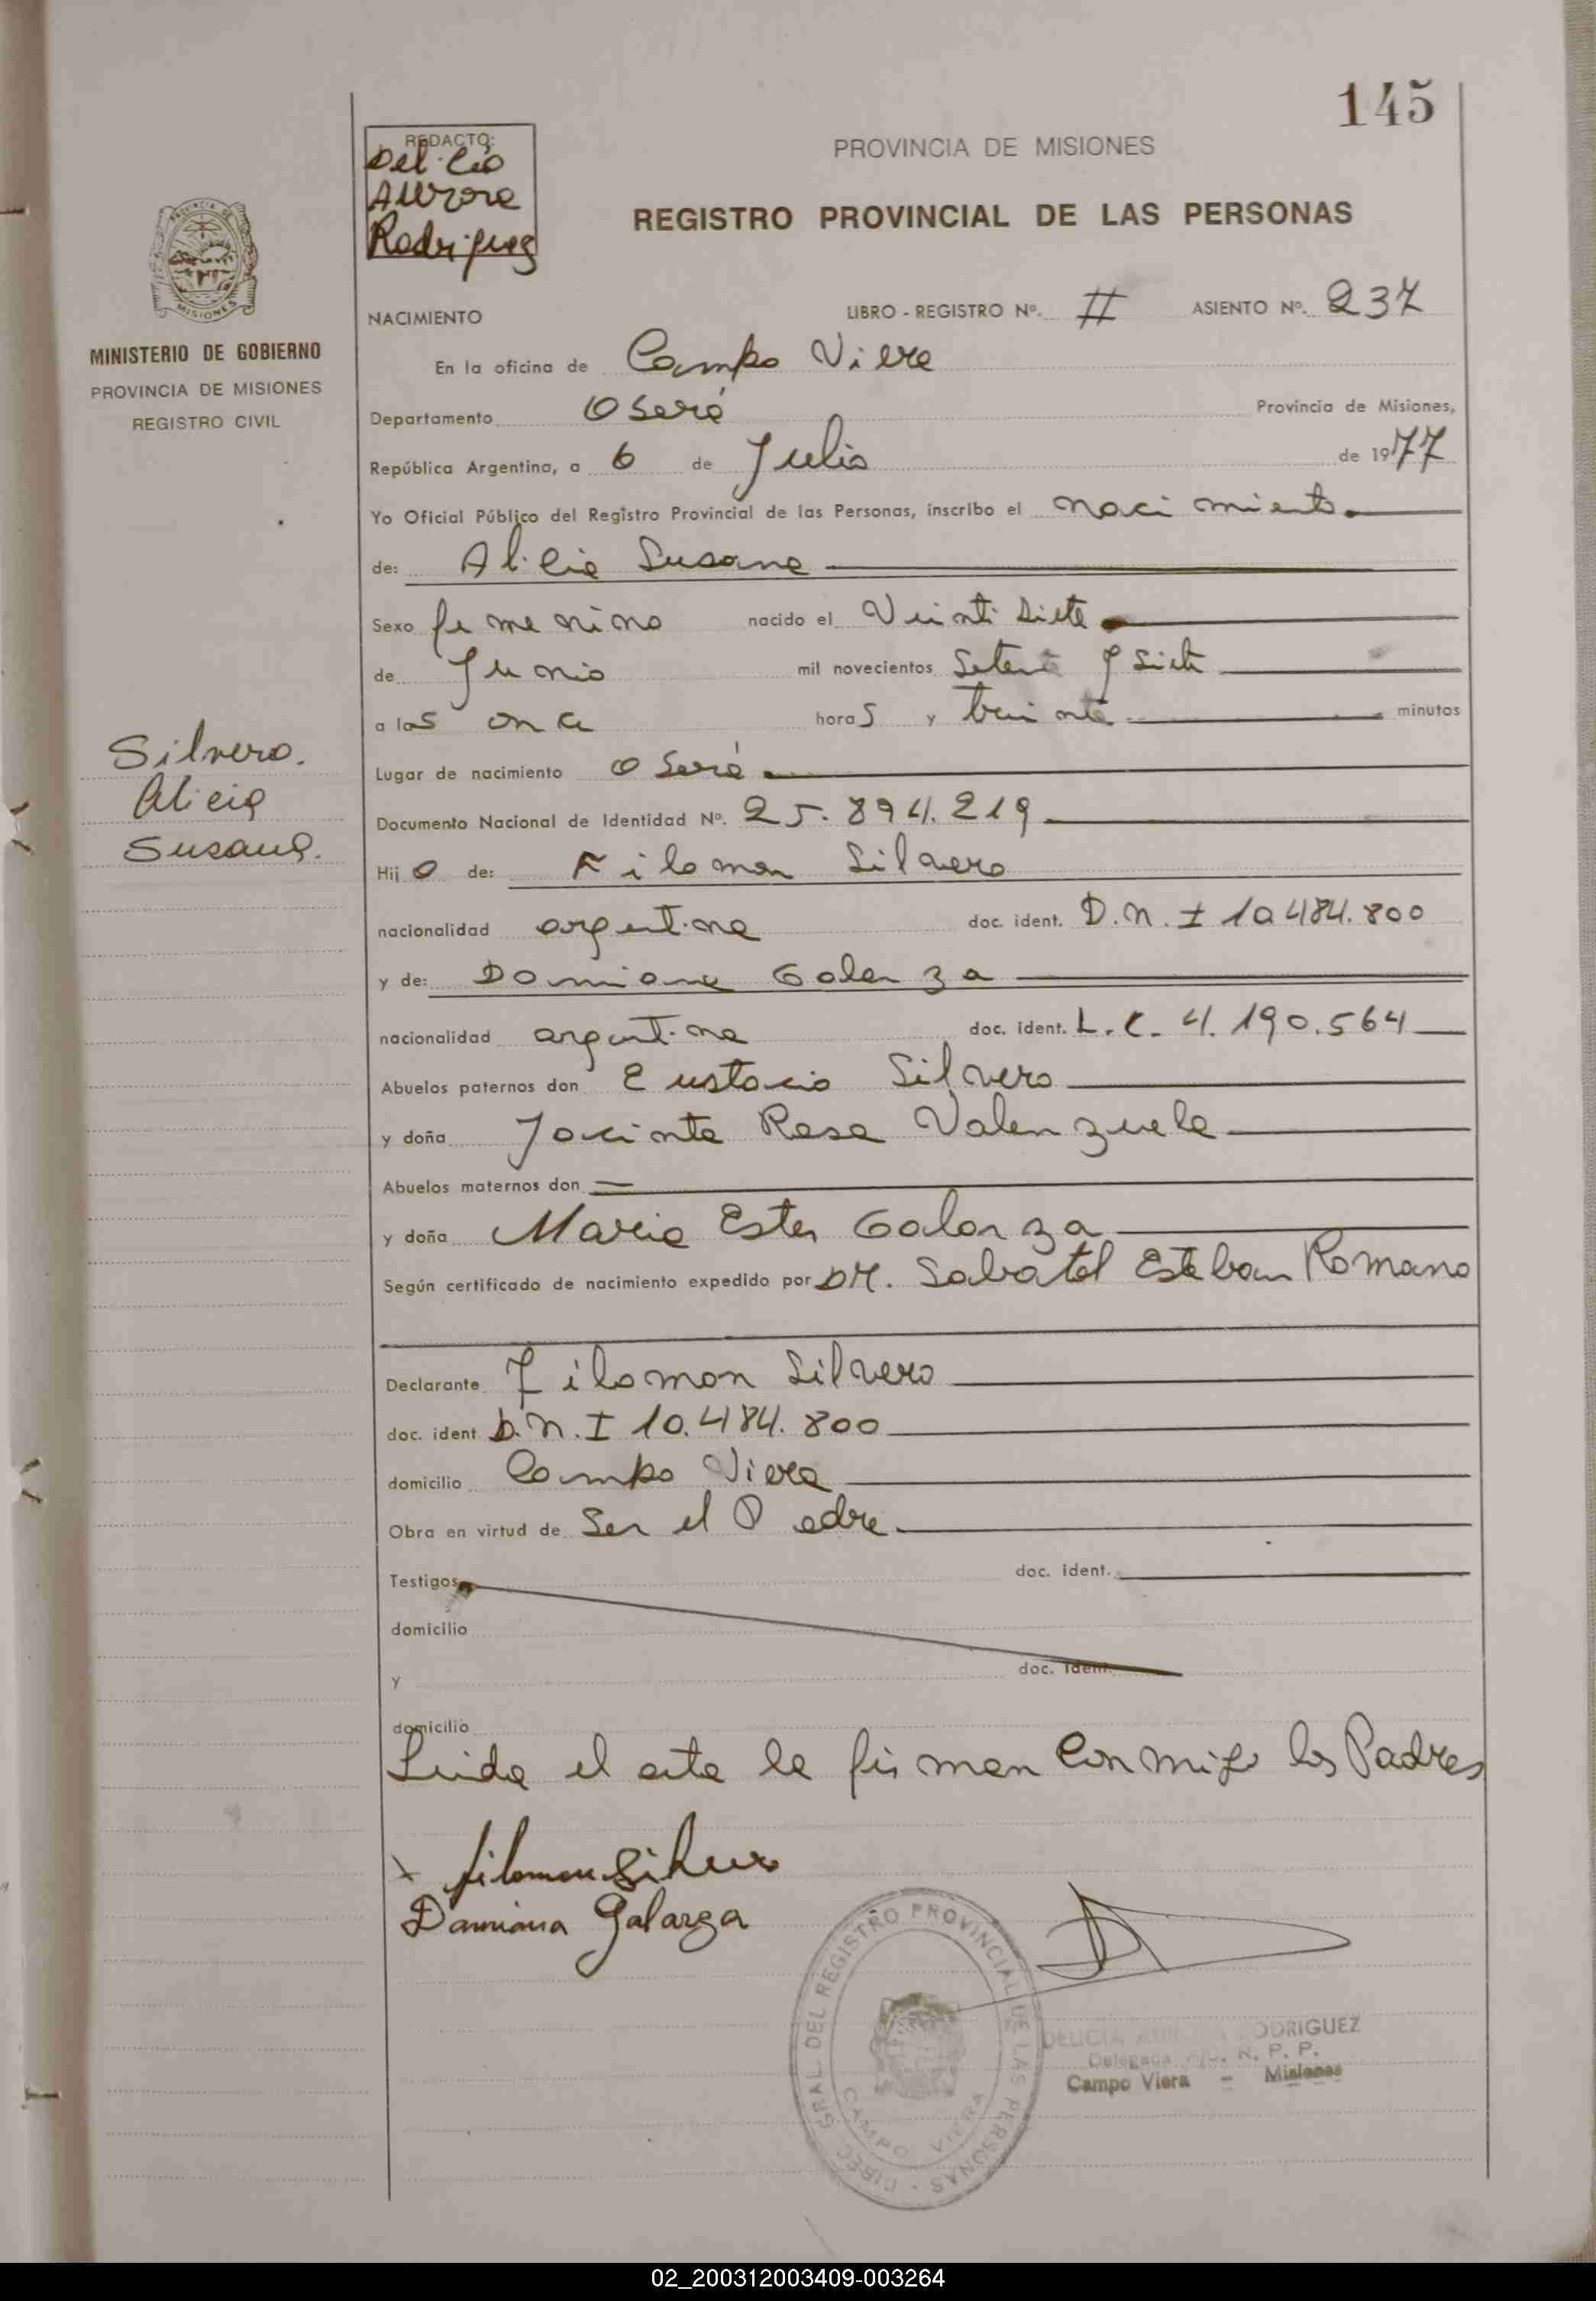 145
REDACTO:
Delicia
Aurora
Rodriguez
PROVINCIA DE MISIONES
REGISTRO PROVINCIAL DE LAS PERSONAS
MINISTERIO DE GOBIERNO
PROVINCIA DE MISIONES
REGISTRO CIVIL
NACIMIENTO LIBRO - REGISTRO Nº. II ASIENTO Nº. 237
En la oficina de Campo Viera
Departamento Oberá Provincia de Misiones,
República Argentina, a 6 de Julio de 1977
Yo Oficial Público del Registro Provincial de las Personas, inscribo el nacimiento
de: Alicia Susana
Sexo femenino nacido el Veintisiete
de Junio mil novecientos Setenta y Siete
a las once horas y treinta minutos
Silvero.
Alicia
Susana.
Lugar de nacimiento Oberá
Documento Nacional de Identidad Nº. 25.894.219
Hijo de: Filomon Silvero
nacionalidad argentina doc. ident. D.N.I 10.484.800
y de: Damiana Galarza
nacionalidad argentina doc. ident. L.C. 4.190.564
Abuelos paternos don Eustacio Silvero
y doña Jacinta Rosa Valenzuela
Abuelos maternos don =
y doña Maria Ester Galarza
Según certificado de nacimiento expedido por DR. Esteban Romano
Declarante Filomon Silvero
doc. ident D.N.I 10.484.800
domicilio Campo Viera
Obra en virtud de Ser el Padre
Testigos doc. ident.
domicilio
y doc. ident.
domicilio
Leida el acta la firman conmigo los Padres
x filomon Silvero
Damiana Galarza
DIREC. GRAL. DEL REGISTRO PROVINCIAL DE LAS PERSONAS
CAMPO VIERA
DELICIA AURORA RODRIGUEZ
Delegada R. P. P.
Campo Viera - Misiones
02_200312003409-003264